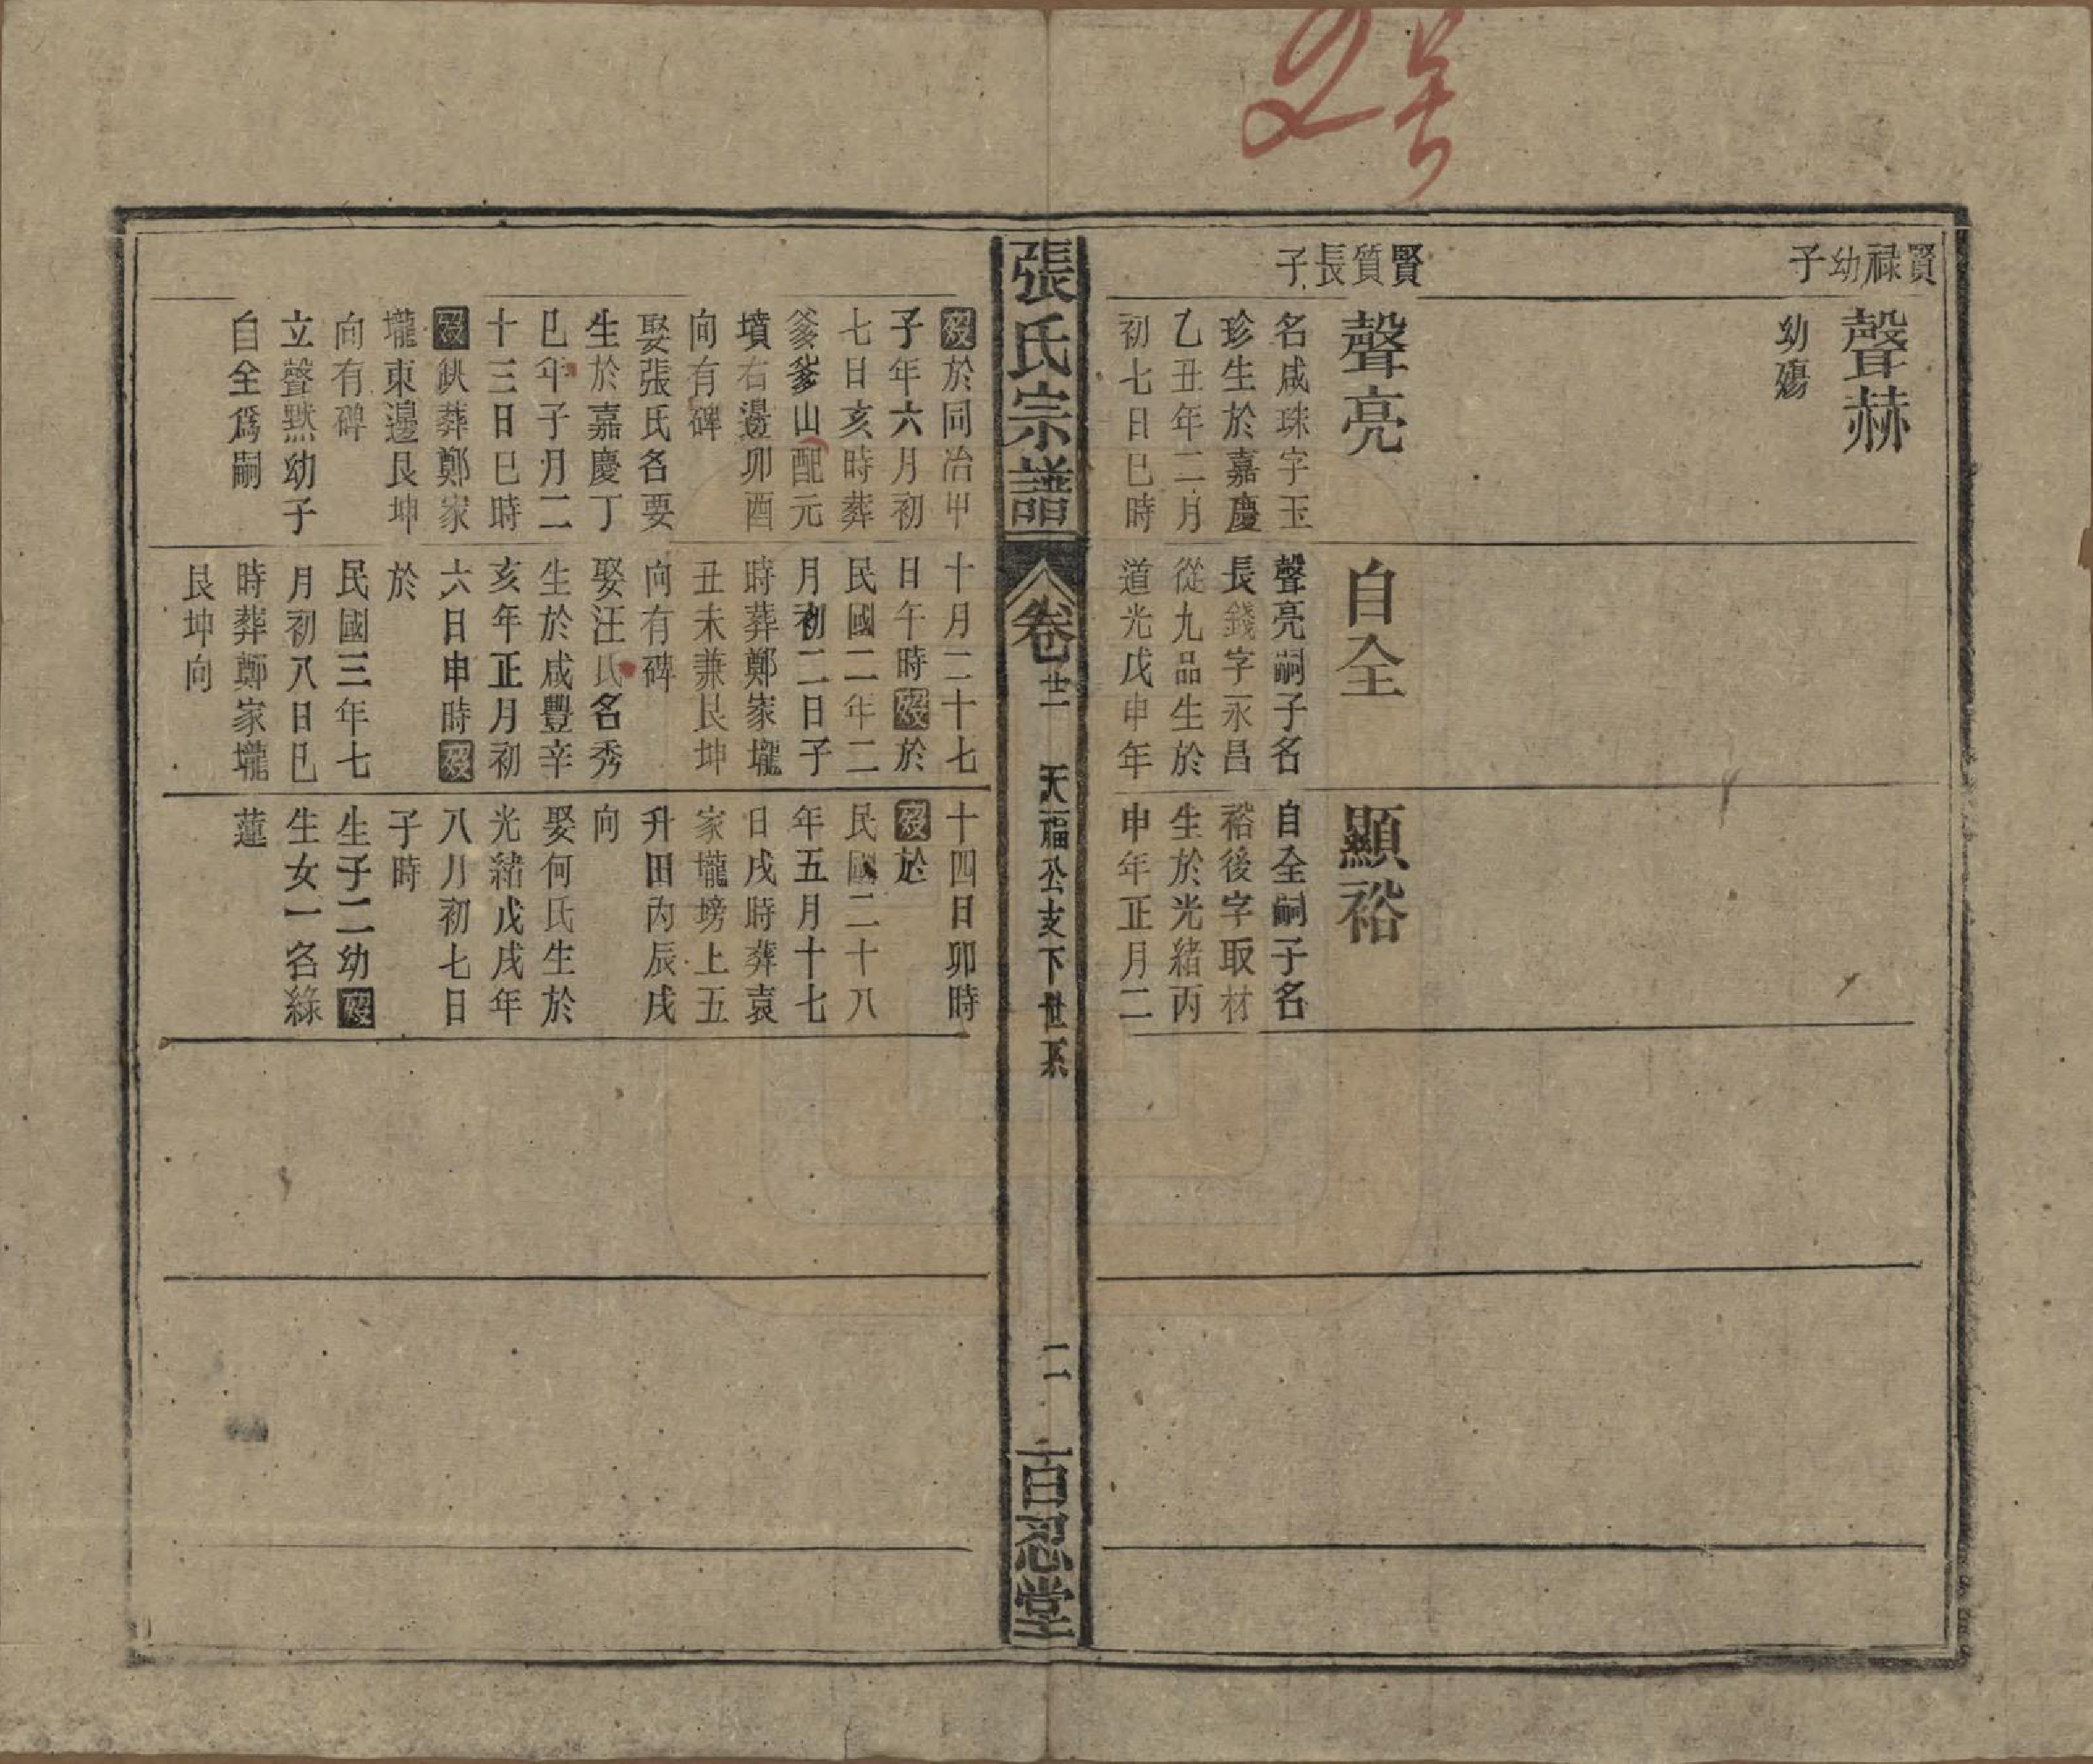 2号
賢祿幼子
聲赫
幼殤
賢質長子
聲亮
名咸珠字玉
珍生於嘉慶
乙丑年二月
初七日巳時
自全
聲亮嗣子名
長錢字永昌
從九品生於
道光戊申年
顯裕
自全嗣子名
裕後字取材
生於光緒丙
申年正月二
張氏宗譜
卷廿一
天福公支下世系
二
百忍堂
歿於同治甲
子年六月初
七日亥時葬
爹爹山配元
墳右邊卯酉
向有碑
娶張氏名要
生於嘉慶丁
巳年子月二
十三日巳時
歿缺葬鄭家
壠東邊艮坤
向有碑
立聲默幼子
自全爲嗣
十月二十七
日午時歿於
民國二年二
月初二日子
時葬鄭家壠
丑未兼艮坤
向有碑
娶汪氏名秀
生於咸豐辛
亥年正月初
六日申時歿
於
民國三年七
月初八日巳
時葬鄭家壠
艮坤向
十四日卯時
歿於
民國二十八
年五月十七
日戌時葬袁
家壠塝上五
升田丙辰戌
向
娶何氏生於
光緒戊戌年
八月初七日
子時
生子二幼歿
生女一名綠
蓮